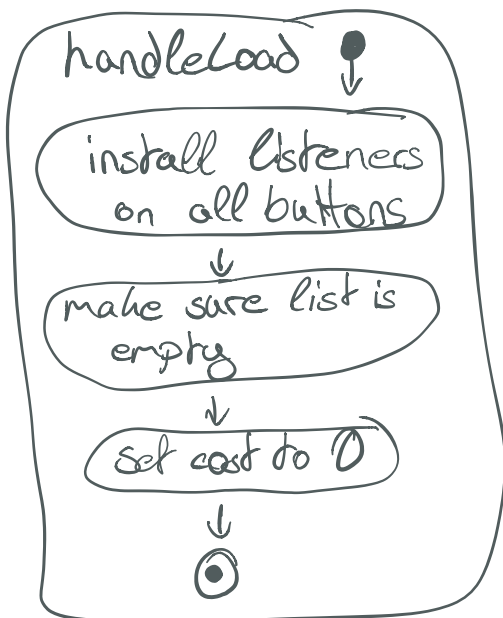 handleLoad
install listeners
on all buttons
make sure list is
empty
set cost to 0